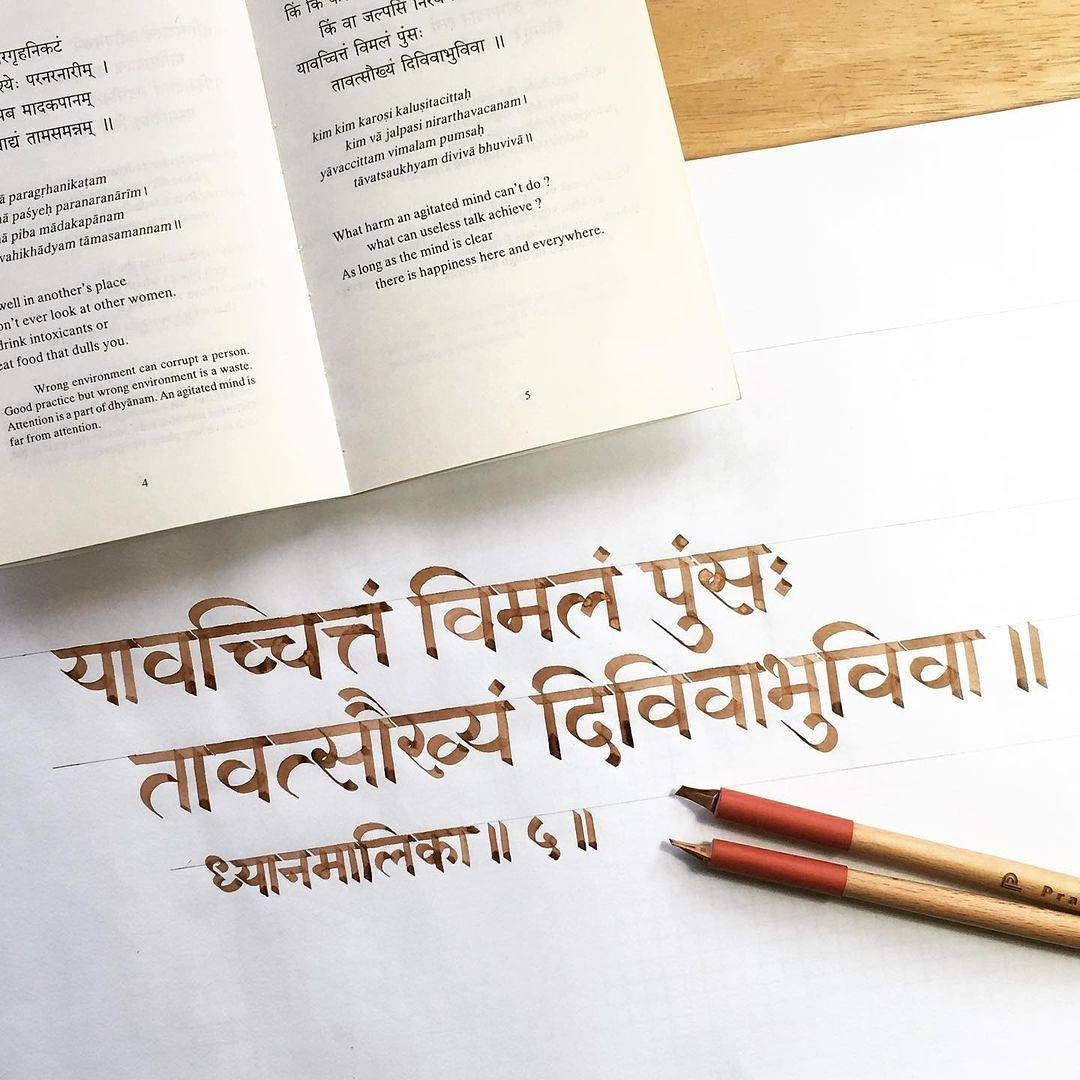 मादकपानम्
तामसमन्नम् ॥
paragṛhanikaṭam
paśyeḥ paranaranārīm ।
piba mādakapānam
vahikhādyam tāmasamannam ॥
in another's place
ever look at other women.
drink intoxicants or
eat food that dulls you.
Wrong environment can corrupt a person.
Good practice but wrong environment is a waste.
Attention is a part of dhyānam. An agitated mind is
far from attention.
4
किं वा जल्पसि
यावच्चित्तं विमलं पुंसः
तावत्सौख्यं दिविवाभुविवा ॥
kim kim karoṣi kaluṣitacittaḥ
kim vā jalpasi nirarthavacanam ।
yāvaccittam vimalam pumsaḥ
tāvatsaukhyam divivā bhuvivā ॥
What harm an agitated mind can't do ?
what can useless talk achieve ?
As long as the mind is clear
there is happiness here and everywhere.
5
यावच्चित्तं विमलं पुंसः
तावत्सौख्यं दिविवाभुविवा ॥
ध्यानमालिका ॥ ५ ॥